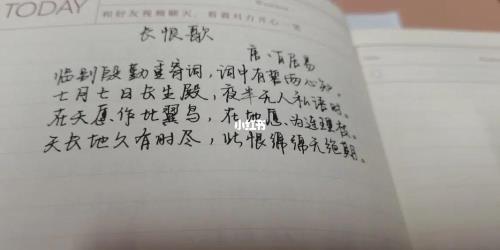 TODAY
和好友视频聊天，看着对方开心一笑
长恨歌
唐·白居易
临别殷勤重寄词，词中有誓两心知。
七月七日长生殿，夜半无人私语时。
在天愿作比翼鸟，在地愿为连理枝。
天长地久有时尽，此恨绵绵无绝期。
小红书